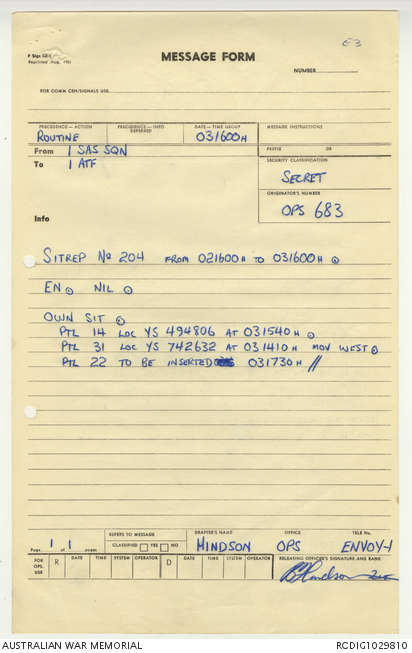 E3
MESSAGE FORM
Reprinted Aug. 1961
NUMBER
FOR COMM CEN/SIGNALS USE
PRECEDENCE—ACTION PRECEDENCE—INFO DEFERRED DATE—TIME GROUP MESSAGE INSTRUCTIONS
ROUTINE 031600H
From 1 SAS SQN PREFIX GR
To 1 ATF SECURITY CLASSIFICATION
SECRET
ORIGINATOR'S NUMBER
Info OPS 683
SITREP No 204 FROM 021600H TO 031600H
EN NIL
OWN SIT
PTL 14 LOC YS 494806 AT 031540H
PTL 31 LOC YS 742632 AT 031410H MOV WEST
PTL 22 TO BE INSERTED 031730H //
Page 1 of 1 pages
REFERS TO MESSAGE DRAFTER'S NAME OFFICE TELE No.
CLASSIFIED YES NO HINDSON OPS ENVOY-1
FOR OPS. USE R DATE TIME SYSTEM OPERATOR D DATE TIME SYSTEM OPERATOR RELEASING OFFICER'S SIGNATURE AND RANK
AUSTRALIAN WAR MEMORIAL RCDIG1029810